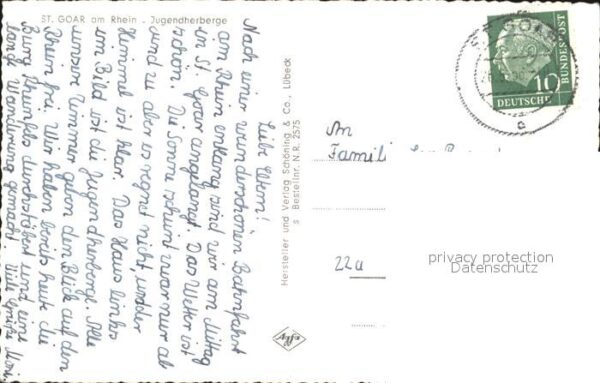 ST. GOAR am Rhein - Jugendherberge
Liebe Utem!
Nach einer wunderschönen Bahnfahrt
am Rhein entlang sind wir am Mittag
in St. Goar angelangt. Das Wetter ist
schön. Die Sonne scheint zwar nur ab
und zu aber es regnet nicht, und der
Himmel ist klar. Das Haus links
im Bild ist die Jugendherberge. Alle
unsere Zimmer geben den Blick auf den
Rhein frei. Wir haben bereits heute die
Burg Rheinfels durchstöbert und eine
Wanderung gemacht
Hersteller und Verlag Schöning & Co., Lübeck
s Bestellnr. N. R. 2575
ST. GOAR
10
DEUTSCHE
BUNDESPOST
An
Famili
22a
privacy protection
Datenschutz